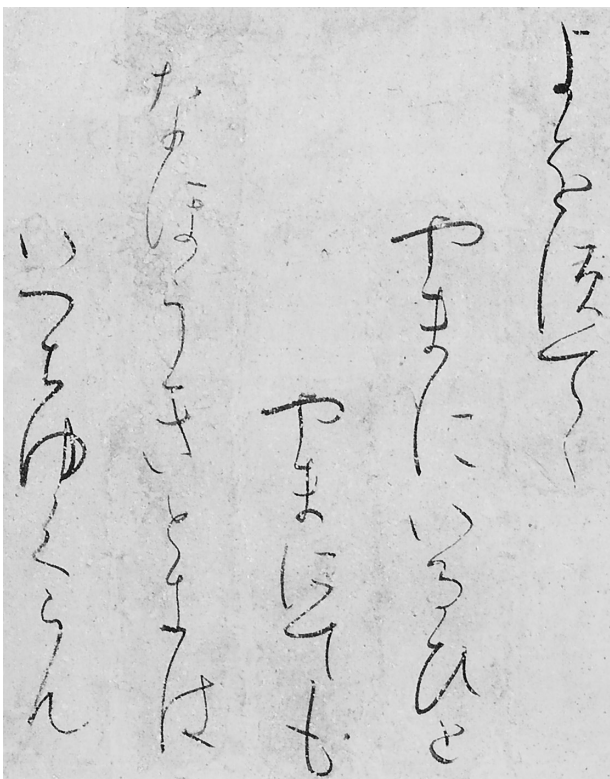 よをすてゝ
やまにいるひと
やまにても
なほうきときは
いつちゆくらん